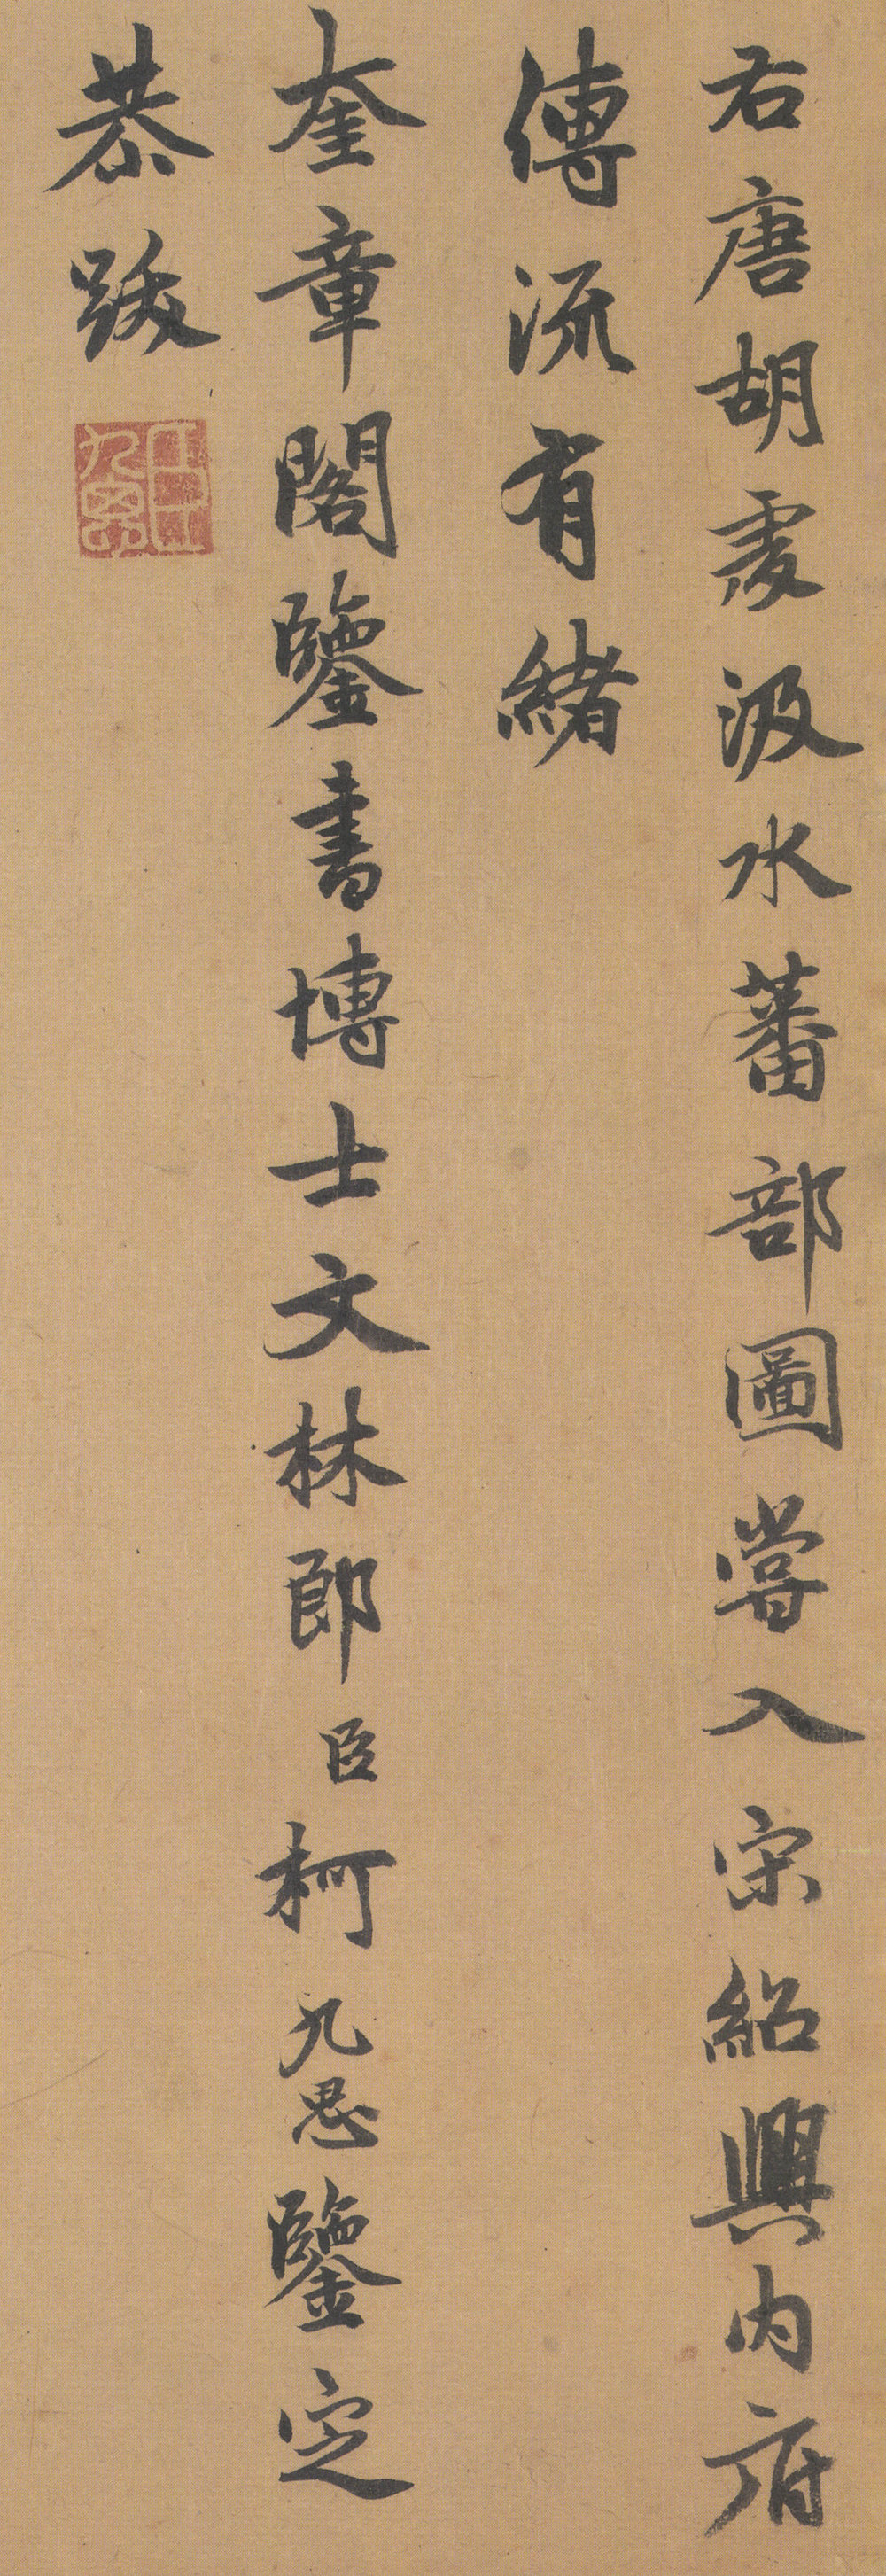 右唐胡虔汲水蕃部圖嘗入宋紹興内府
傳流有緒
奎章閣鑒書博士文林郎臣柯九思鑒定
恭跋